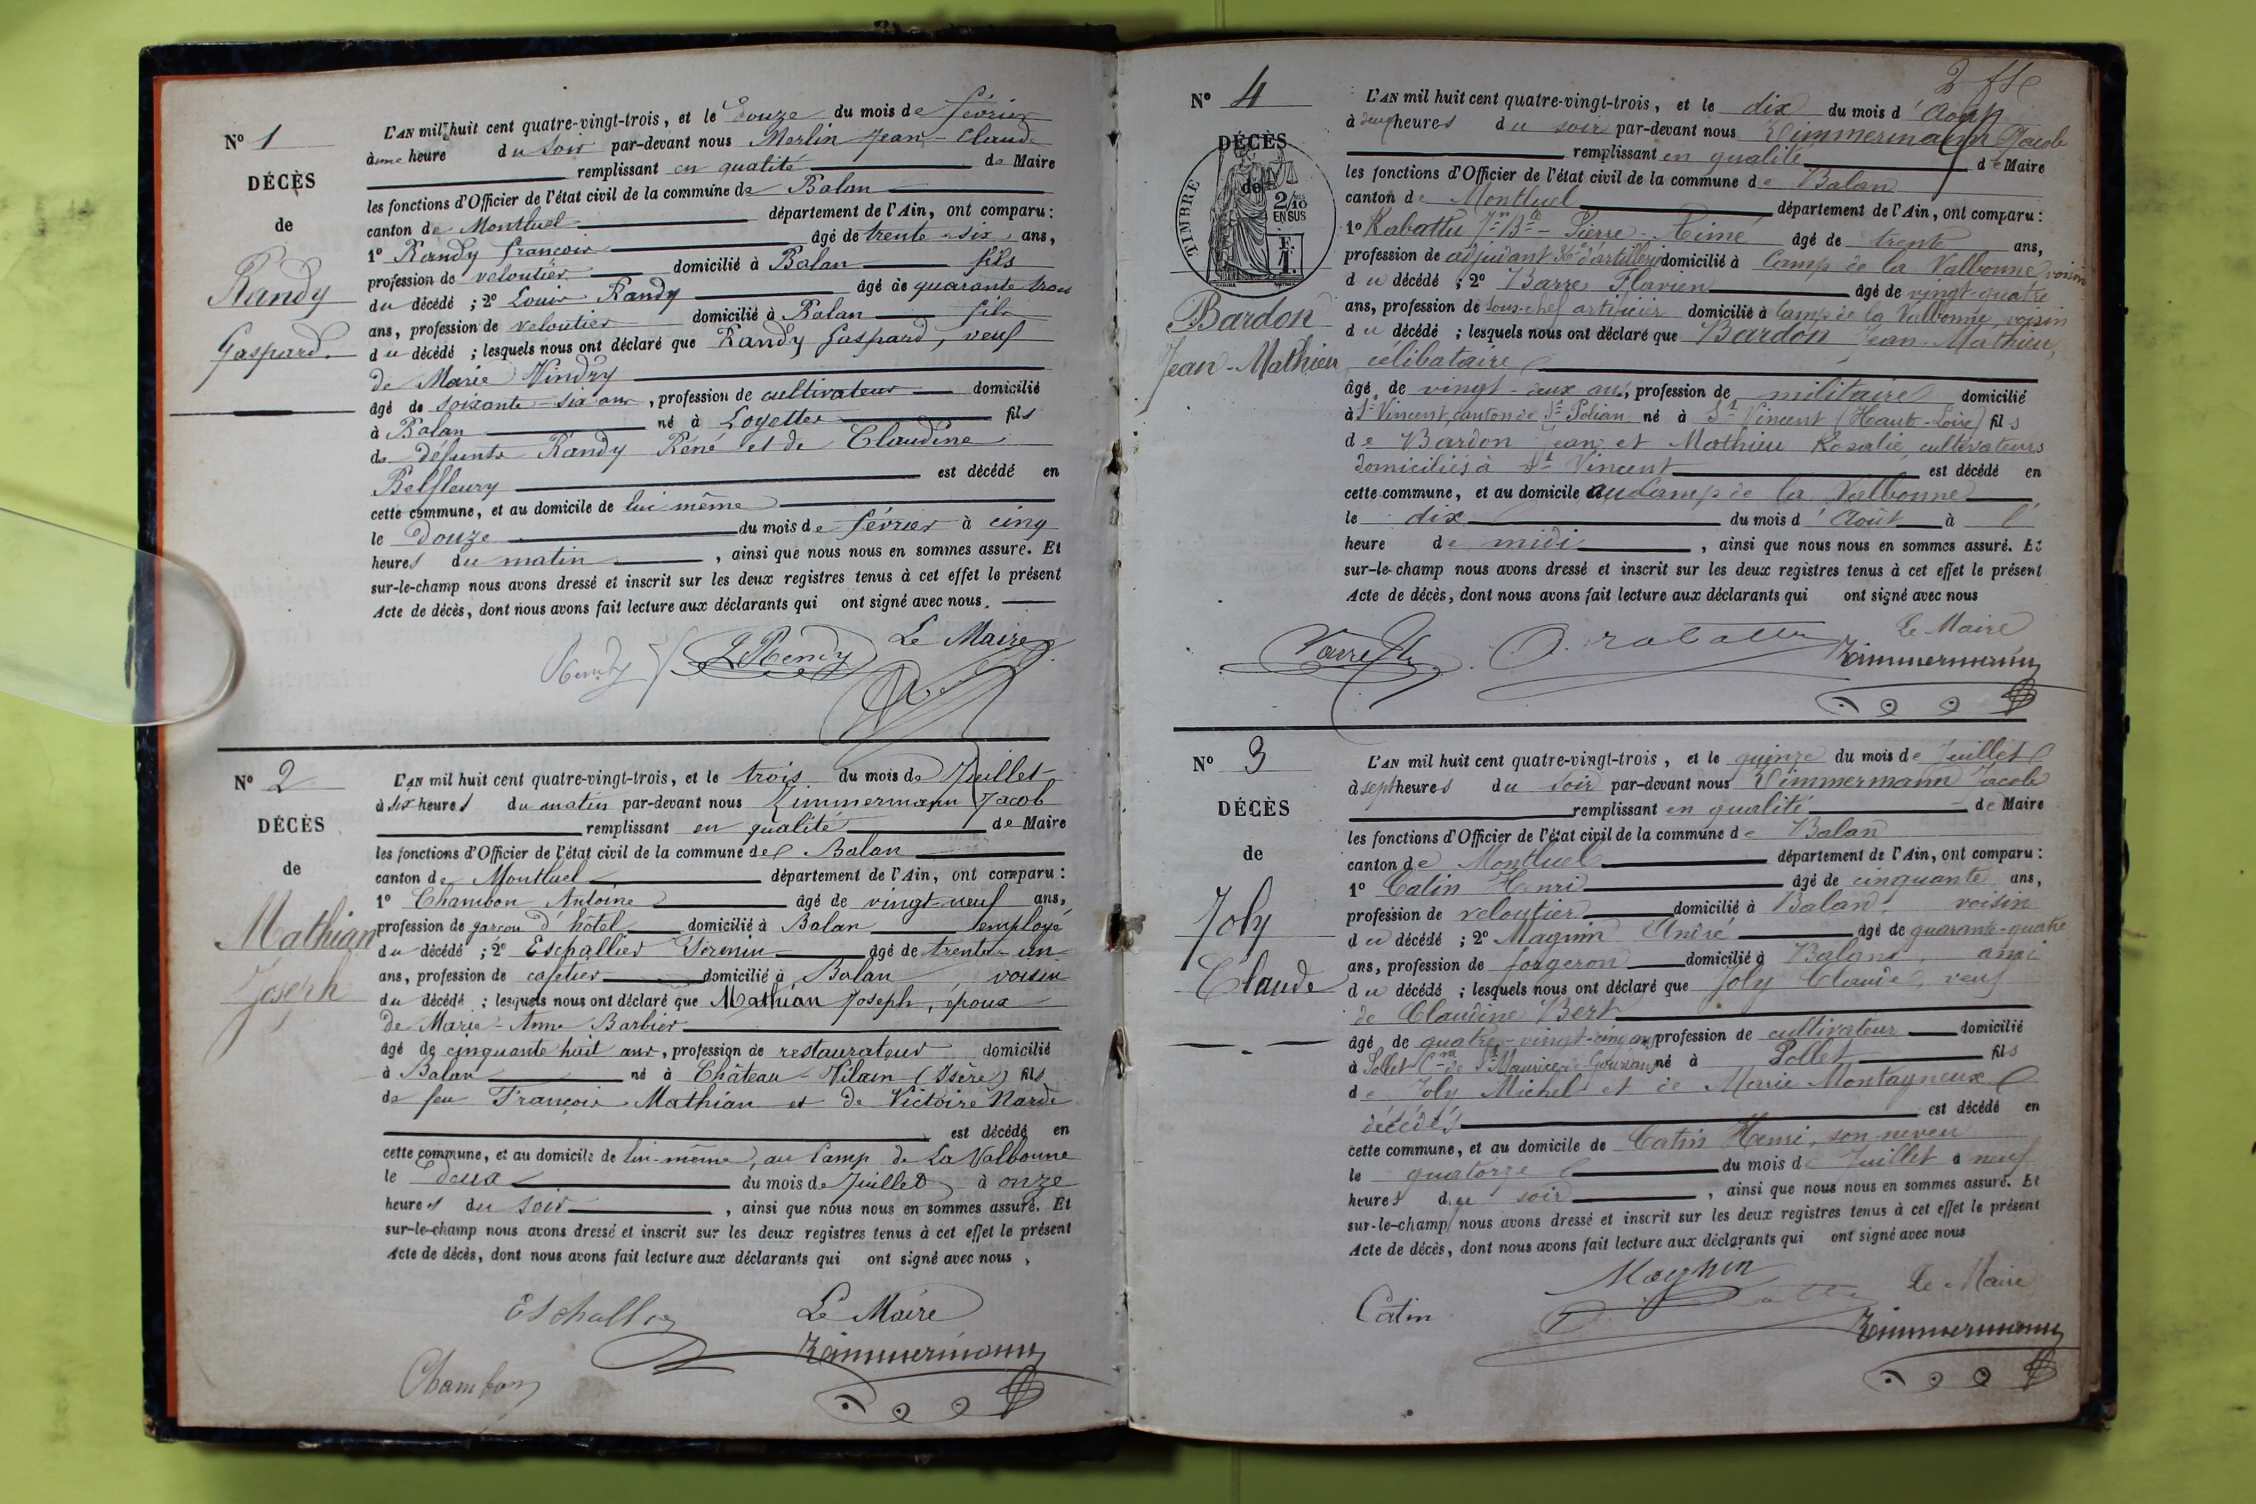 N° 1
DÉCÈS
de
Randy
Gaspard.
L'AN mil huit cent quatre-vingt-trois, et le douze du mois de février
à une heure du soir par-devant nous Merlin Jean-Claude
remplissant en qualité de Maire
les fonctions d'Officier de l'état civil de la commune de Balan
canton de Montluel département de l'Ain, ont comparu :
1° Randy françois âgé de trente-six ans,
profession de veloutier domicilié à Balan fils
du décédé ; 2° Louis Randy âgé de quarante trois
ans, profession de veloutier domicilié à Balan fils
du décédé ; lesquels nous ont déclaré que Randy Gaspard, veuf
de Marie Vindry
âgé de soixante-six ans, profession de cultivateur domicilié
à Balan né à Loyettes fils
de défunts Randy Réné et de Claudine
Belfleury est décédé en
cette commune, et au domicile de lui même
le douze du mois de février à cinq
heures du matin, ainsi que nous nous en sommes assuré. Et
sur-le-champ nous avons dressé et inscrit sur les deux registres tenus à cet effet le présent
Acte de décès, dont nous avons fait lecture aux déclarants qui ont signé avec nous.
Le Maire
Randy L Randy
N° 2
DÉCÈS
de
Mathian
Joseph
L'AN mil huit cent quatre-vingt-trois, et le trois du mois de Juillet
à six heures du matin par-devant nous Zimmermann Jacob
remplissant en qualité de Maire
les fonctions d'Officier de l'état civil de la commune de Balan
canton de Montluel département de l'Ain, ont comparu :
1° Chambon Antoine âgé de vingt-neuf ans,
profession de garçon d'hôtel domicilié à Balan employé
du décédé ; 2° Eschallier Firmin âgé de trente-un
ans, profession de cafetier domicilié à Balan voisin
du décédé ; lesquels nous ont déclaré que Mathian Joseph, époux
de Marie-Anne Barbier
âgé de cinquante huit ans, profession de restaurateur domicilié
à Balan né à Château-Vilain (Isère) fils
de feu François Mathian et de Victoire Narde
est décédé en
cette commune, et au domicile de lui-même, au Camp de La Valbonne
le deux du mois de Juillet à onze
heures du soir, ainsi que nous nous en sommes assuré. Et
sur-le-champ nous avons dressé et inscrit sur les deux registres tenus à cet effet le présent
Acte de décès, dont nous avons fait lecture aux déclarants qui ont signé avec nous,
Eschallier Le Maire
Zimmermann
Chambon
N° 4
DÉCÈS
de
TIMBRE
2/10 EN SUS
F. 1.
Bardon
Jean-Mathieu
L'AN mil huit cent quatre-vingt-trois, et le dix du mois d'Août
à deux heures du soir par-devant nous Zimmermann Jacob
remplissant en qualité de Maire
les fonctions d'Officier de l'état civil de la commune de Balan
canton de Montluel département de l'Ain, ont comparu :
1° Rabattu Jn Bte-Pierre-Aimé âgé de trente ans,
profession de adjudant d'artillerie domicilié à Camp de la Valbonne voisin
du décédé ; 2° Barre Flavien âgé de vingt-quatre
ans, profession de Sous-chef artificier domicilié à Camp de la Valbonne, voisin
du décédé ; lesquels nous ont déclaré que Bardon Jean-Mathieu,
célibataire
âgé de vingt-deux ans, profession de militaire domicilié
à St Vincent, canton de St Polian né à St Vincent (Haute-Loire) fils
de Bardon Jean et Mathieu Rosalie, cultivateurs
domiciliés à St Vincent est décédé en
cette commune, et au domicile au Camp de la Valbonne
le dix du mois d'Août à l'
heure de midi, ainsi que nous nous en sommes assuré. Et
sur-le-champ nous avons dressé et inscrit sur les deux registres tenus à cet effet le présent
Acte de décès, dont nous avons fait lecture aux déclarants qui ont signé avec nous
Le Maire
Rabattu Zimmermann
N° 3
DÉCÈS
de
Joly
Claude
L'AN mil huit cent quatre-vingt-trois, et le quinze du mois de Juillet
à sept heures du soir par-devant nous Zimmermann Jacob
remplissant en qualité de Maire
les fonctions d'Officier de l'état civil de la commune de Balan
canton de Montluel département de l'Ain, ont comparu :
1° Catin Henri âgé de cinquante ans,
profession de veloutier domicilié à Balan, voisin
du décédé ; 2° Magnin André âgé de quarante-quatre
ans, profession de forgeron domicilié à Balan, ami
du décédé ; lesquels nous ont déclaré que Joly Claude, veuf
de Claudine Bert
âgé de quatre-vingt-cinq ans, profession de cultivateur domicilié
à Pollet Cne de St Maurice de Gourdans né à Pollet fils
de Joly Michel et de Marie Montagneux
décédés est décédé en
cette commune, et au domicile de Catin Henri, son neveu
le quatorze du mois de Juillet à neuf
heures du soir, ainsi que nous nous en sommes assuré. Et
sur-le-champ nous avons dressé et inscrit sur les deux registres tenus à cet effet le présent
Acte de décès, dont nous avons fait lecture aux déclarants qui ont signé avec nous
Magnin Le Maire
Catin
Zimmermann